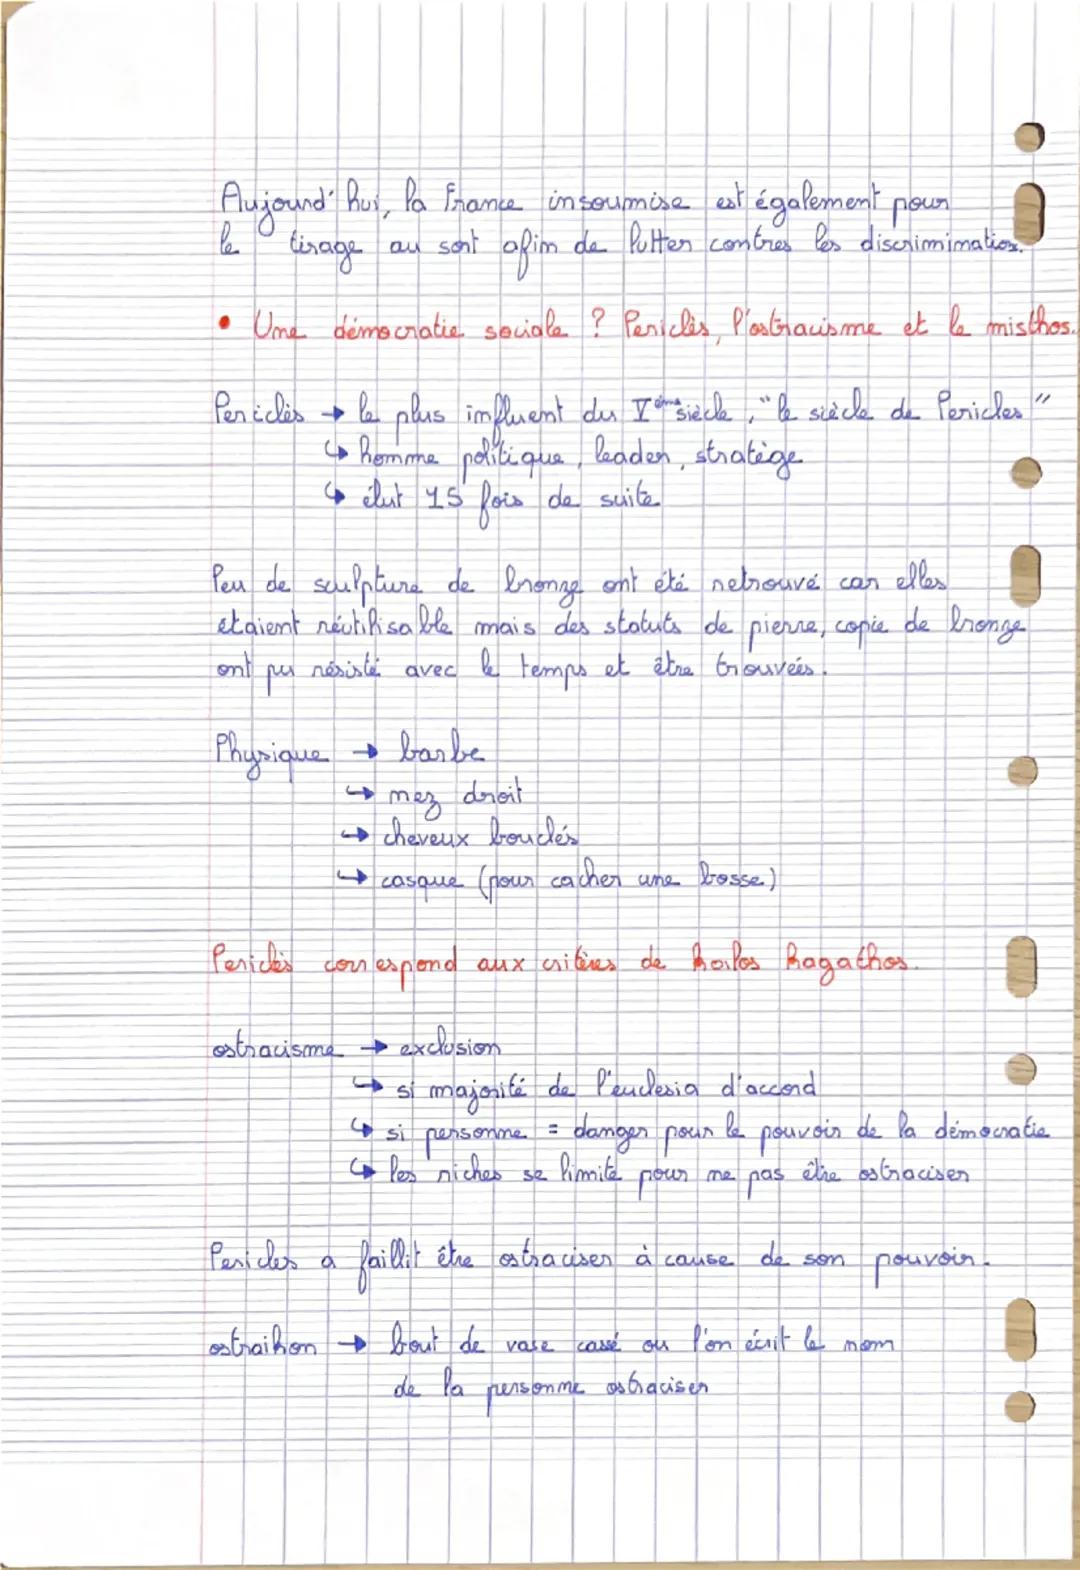 Aujourd'hui, la France insoumise est également pour
le tirage au sort afin de lutter contres les discrimination.
• Une démocratie sociale ? Periclès, l'ostracisme et le misthos.
Periclès → le plus influent du Vème siècle, "le siècle de Pericles"
↳ homme politique, leader, stratège
↳ élut 15 fois de suite
Peu de sculpture de bronze ont été retrouvé car elles
etaient réutilisable mais des statuts de pierre, copie de bronze
ont pu résisté avec le temps et être trouvées.
Physique → barbe
↳ nez droit
↳ cheveux bouclés
↳ casque (pour cacher une bosse)
Periclès correspond aux critères de kailos kagathos.
ostracisme → exclusion
↳ si majorité de l'euclesia d'accord
↳ si personne = danger pour le pouvoir de la démocratie
↳ les riches se limité pour ne pas être ostraciser
Pericles a faillit être ostraciser à cause de son pouvoir.
ostraikon → bout de vase cassé ou l'on écrit le nom
de la personne ostraciser